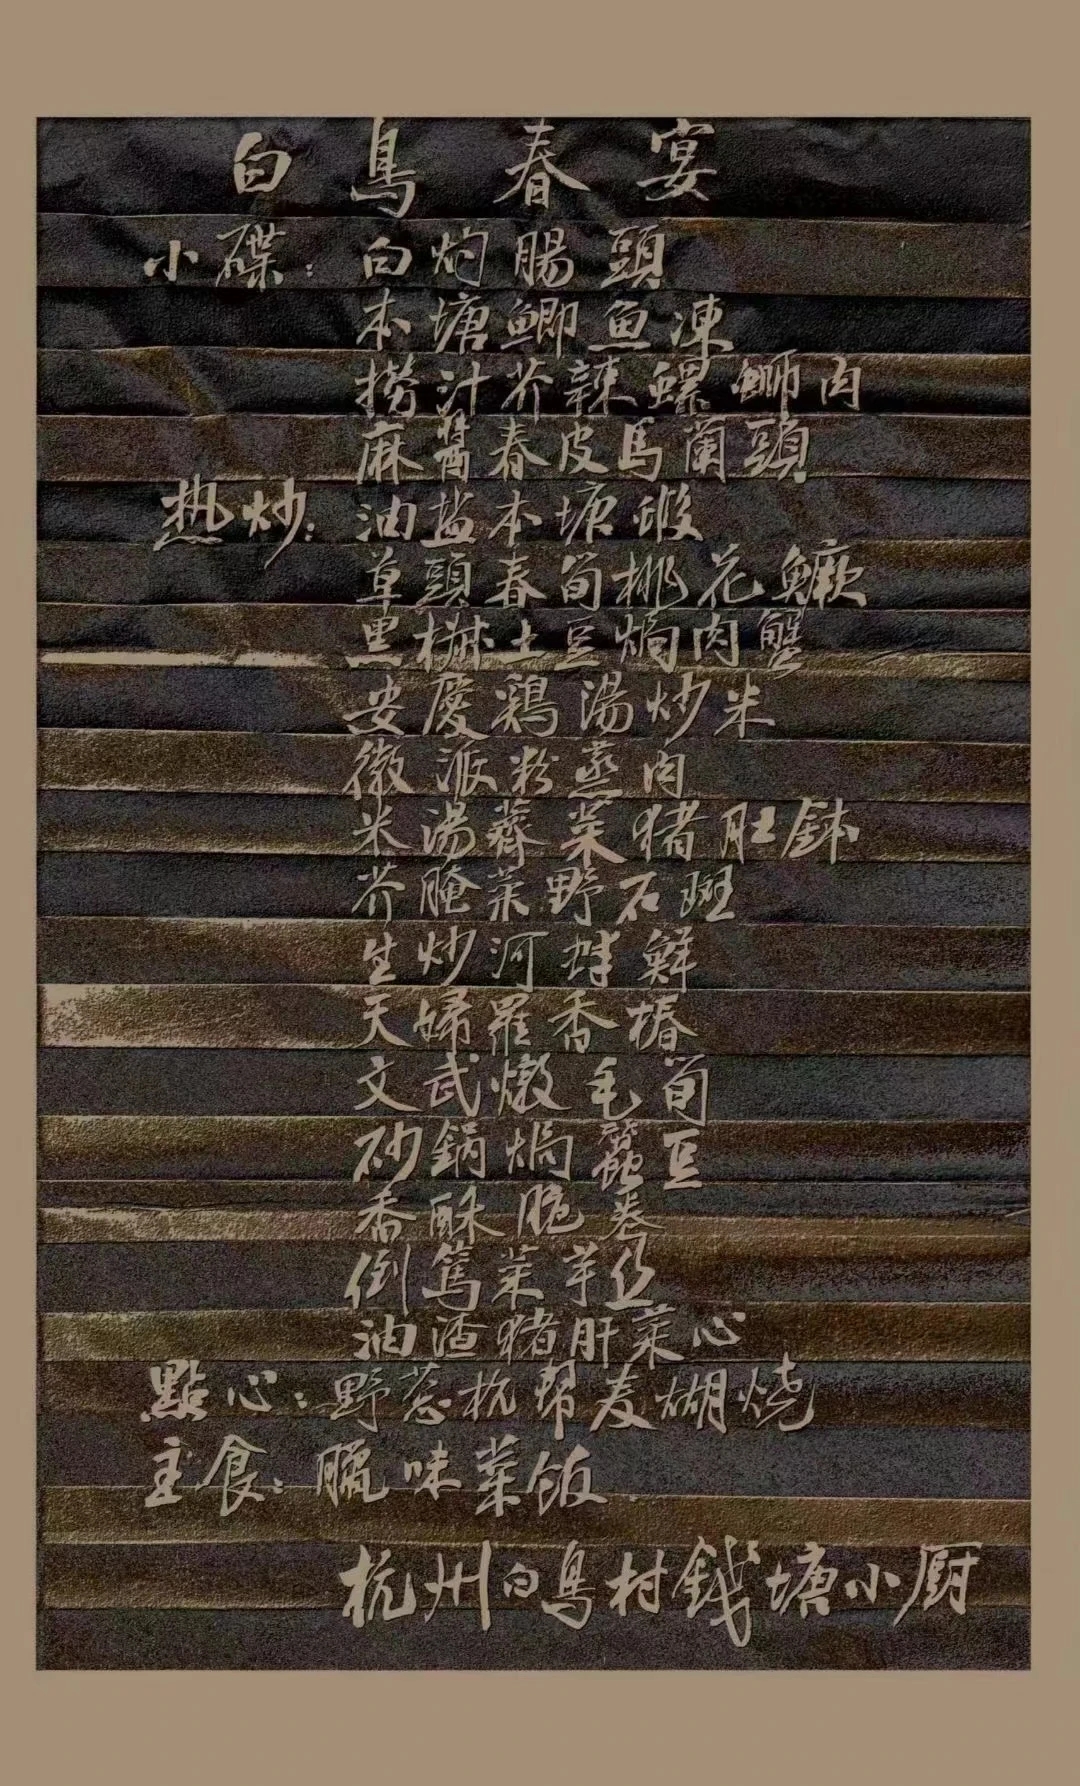 白鳥春宴
小碟：白灼腸頭
本塘鲫鱼凍
捞汁芥辣螺螄肉
麻醬春皮馬蘭頭
热炒：油盐本塘蝦
草頭春筍桃花鳜
黑椒土豆焗肉蟹
安慶鷄湯炒米
徽派粉蒸肉
米湯薺菜猪肚鉢
芥腌菜野石斑
生炒河蚌鮮
天婦羅香椿
文武燉毛筍
砂鍋焗蠶豆
香酥脆卷
倒篤菜芋艿
油渣猪肝菜心
點心：野葱杭帮麦糊烧
主食：臘味菜饭
杭州白鳥村錢塘小厨